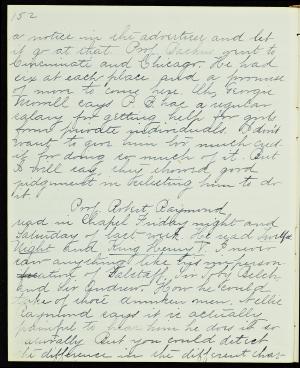 152
a notice in the advertiser and let
it go at that Prof. Backus went to
Cincinnate and Chicago. He had
six at each place and a promise
of more to come here. Georgie
Morrill says P. B has a regular
salary for getting help for girls
from private individuals. I don't
want to give him too much credit
if for doing so much of it. But
I will say, they showed good
judgment in selecting him to do
it.
Prof. Robert Raymond
read in Chapel Friday night and
Saturday of last week. He read Twelfth
Night and King Henry I never
saw anything like his imperson-
ation of Falstaff, Sir Toby Belch
and Sir Andrew. How he could
take off those drunken men. Nellie
Raymond says it is actually
painful to hear him he does it so
naturally But you could detect
the difference in the different char-